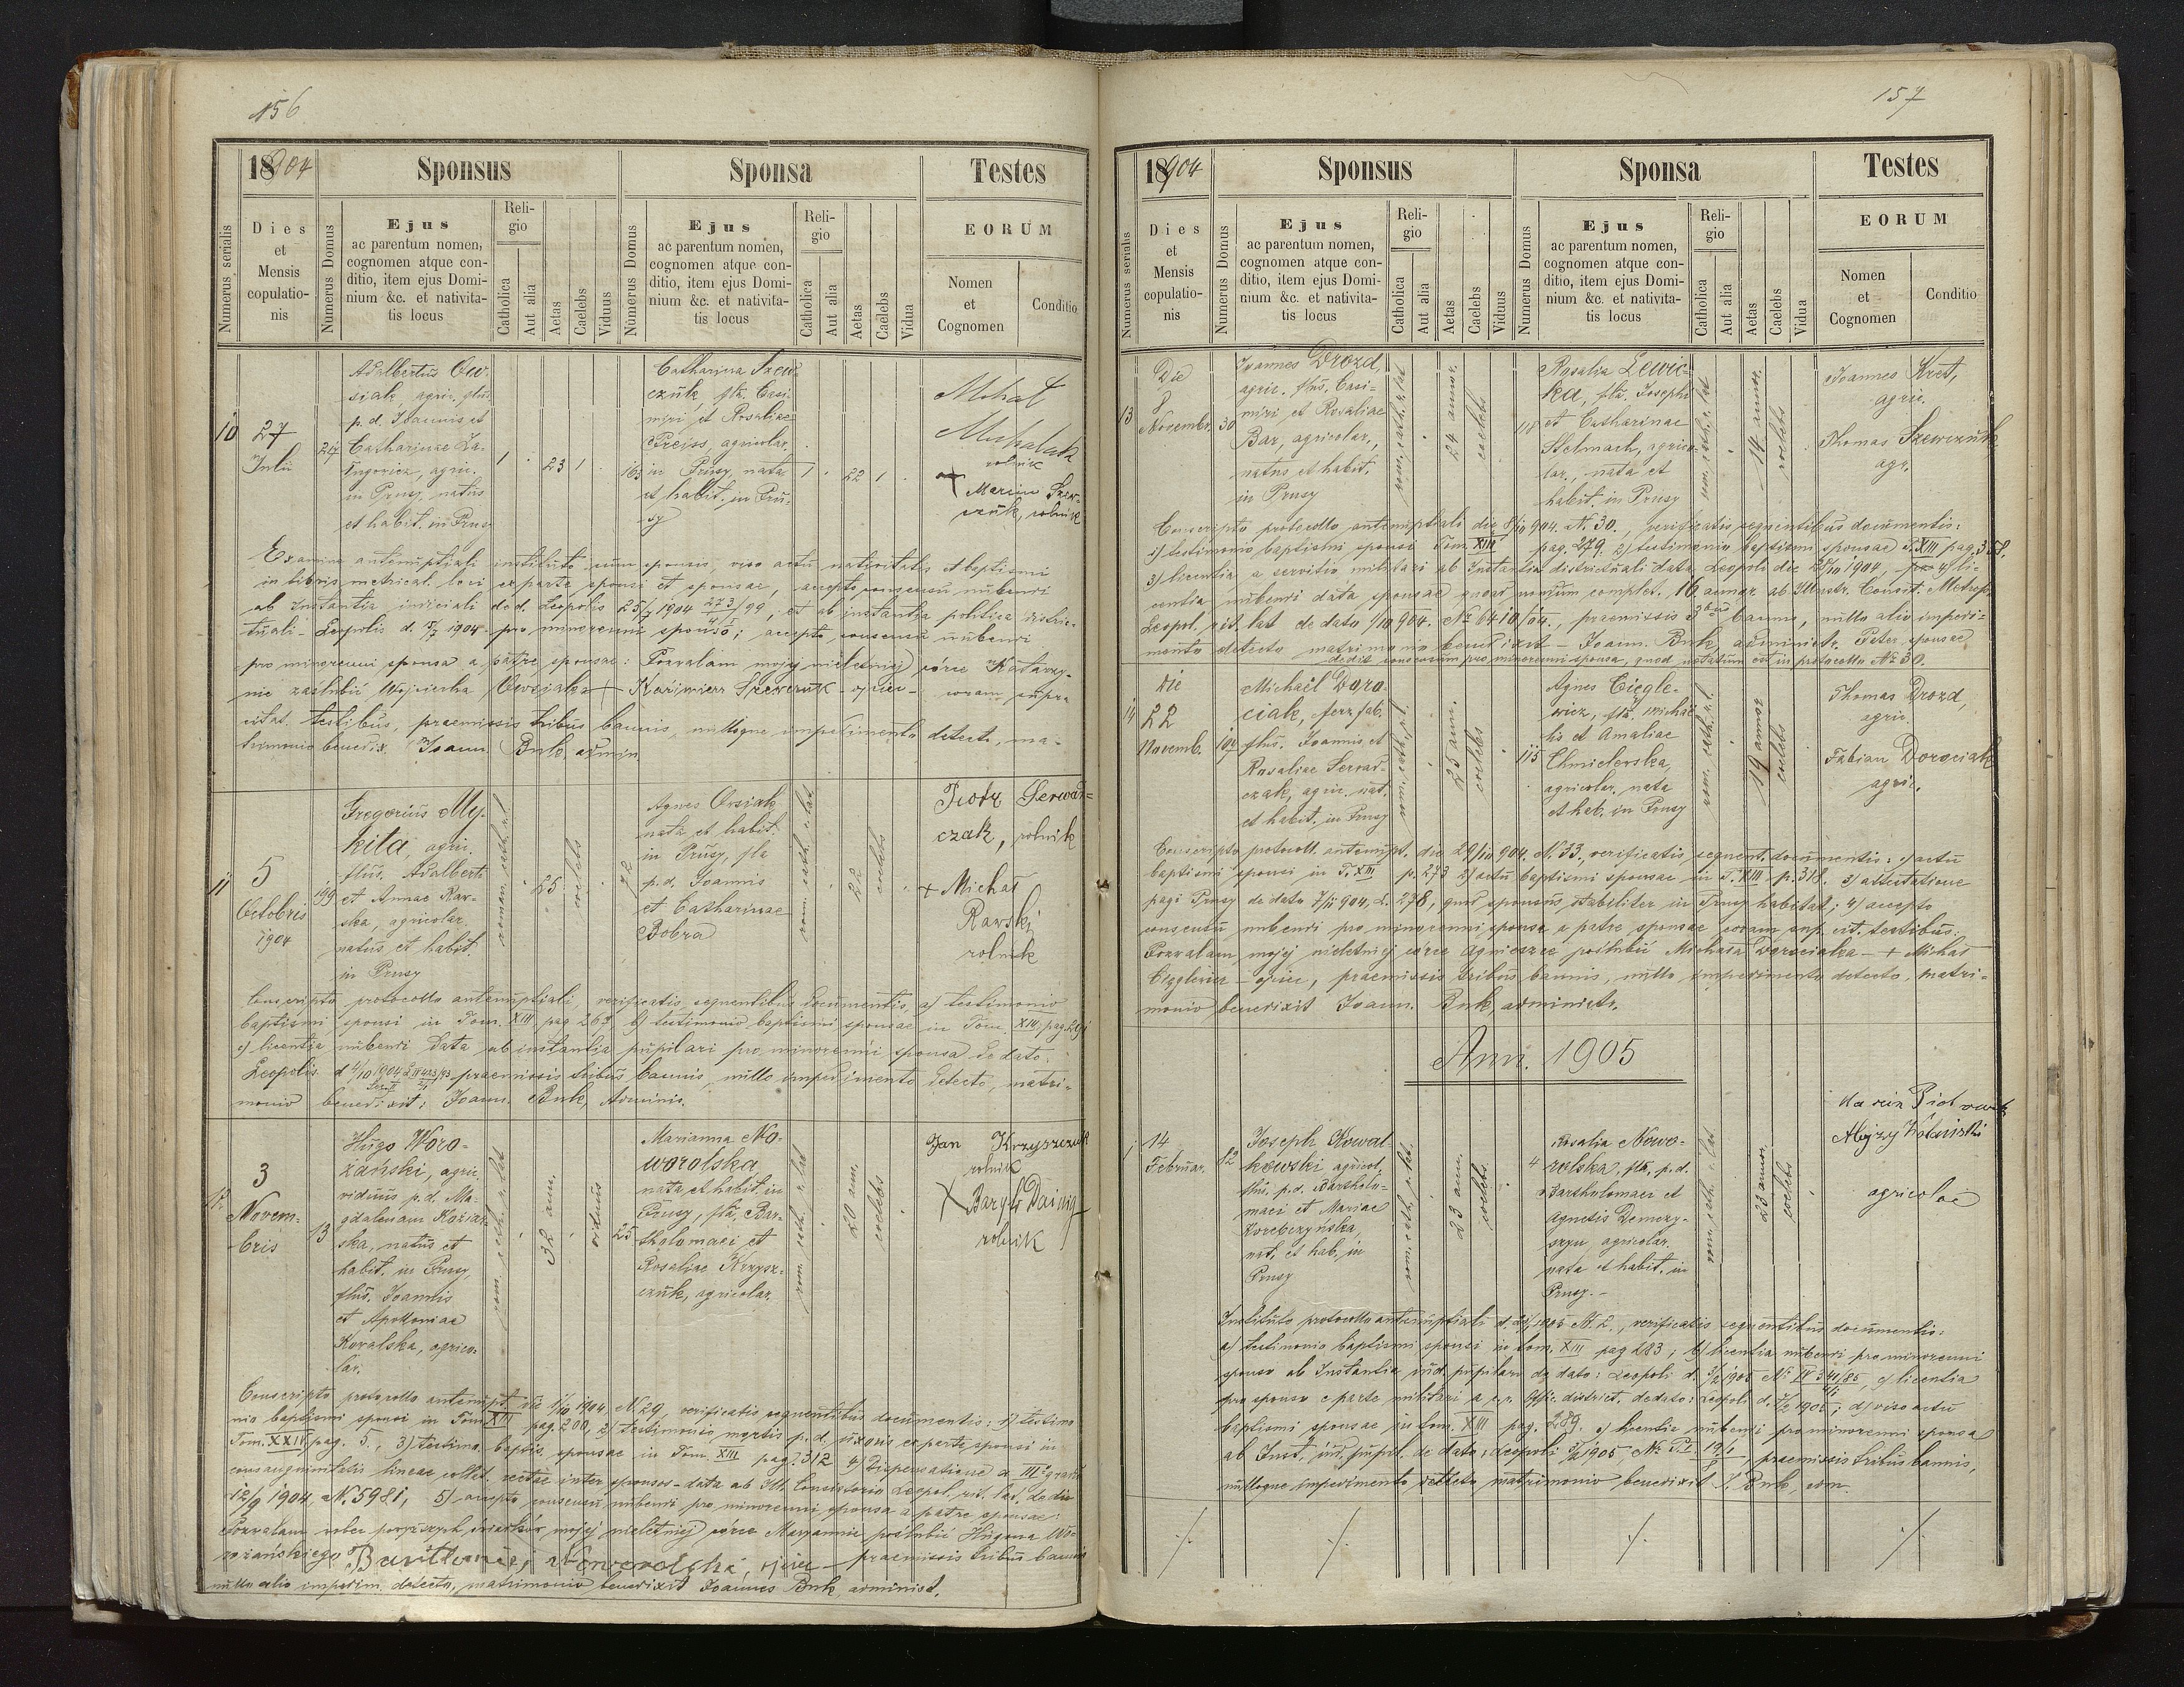 156
1904
Sponsus
Sponsa
Testes
Numerus serialis
Dies
et
Mensis
copulatio-
nis
Numerus Domus
Ejus
ac parentum nomen,
cognomen atque con-
ditio, item ejus Domi-
nium &c. et nativita-
tis locus
Reli-
gio
Catholica
Aut alia
Aetas
Caelebs
Viduus
Numerus Domus
Ejus
ac parentum nomen,
cognomen atque con-
ditio, item ejus Domi-
nium &c. et nativita-
tis locus
Reli-
gio
Catholica
Aut alia
Aetas
Caelebs
Vidua
EORUM
Nomen
et
Cognomen
Conditio
10
27
Julii
217
Adalbertus Ow-
siak, agric. flius
p.d. Joannis et
Catharinae
agric.
in Prusy, natus
et habit. in Prusy
1
23
1
163
Catharina Szew-
czuk, fla. Casi-
miri et Rosaliae
Preiss, agricolar.
in Prusy, nata
et habit. in Pru-
sy
1
22
1
Michał
Michalak
rolnik
+ Marcin Szew-
czuk, rolnik
Examine antenuptiali instituto cum sponsis, viso actu nativitatis et baptismi
in libris metrical. loci ex parte sponsi et sponsae, accepto consensu nubendi
ab Instantia iudiciali de d. Leopolis 25/7 1904 273/99, et ab instantia politica distric-
tuali - Leopolis d. 1904 - pro minorenni sponso; accepto consensu nubendi
pro minorenni sponsa a patre sponsae: Pozwalam mojej nieletniej córce Katarzy-
nie zaślubić Wojciecha Owsiaka + Kazimierz Szewczuk - ojciec - coram supra
citat. testibus, praemissis tribus bannis, nulloque impedimento detecto, ma-
trimonio benedix. Joann. Buk, admin.
11
5
Octobris
1904
199
Gregorius My-
kita, agric.
flius. Adalberti
et Annae Raw-
ska, agricolar.
natus et habit.
in Prusy
roman. cath. r. l.
25
coelebs
72
Agnes Owsiak
nata et habit.
in Prusy, fla
p.d. Joannis
et Catharinae
Bobra
rom. cath. r. lat.
22
coelebs
Piotr Serwań-
czak, rolnik
+ Michał
Rawski
rolnik
Conscripto protocollo antenuptiali, verificatis sequentibus documentis, a) testimonio
baptismi sponsi in Tom. XIII pag 263 b) testimonio baptismi sponsae in Tom. XIII, pag. 291
c) licentia nubendi data ab instantia pupilari pro minorenni sponsa de dato:
Leopolis d 4/10 1904 praemissis tribus bannis, nullo impedimento detecto, matri-
monio benedixit: Joann. Buk, Adminis.
12
3
Novem-
bris
13
Hugo Woro-
żański, agric.
viduus p.d. Ma-
gdalenam Koziar-
ska, natus et
habit. in Prusy,
flius. Joannis
et Apolloniae
Kowalska, agrico-
lar.
rom. cath. r. lat
32 ann.
viduus
25
Marianna No-
worolska
nata et habit. in
Prusy, fla, Bar-
tholomaei et
Rosaliae Krzysz-
czuk, agricolar.
rom. cath. r. lat
20 ann.
coelebs
Jan Krzyszczuk
rolnik
X
rolnik
Conscripto protocollo antenupt. die 1/10 1904 N. 29, verificatis sequentibus documentis: 1) testimo-
nio baptismi sponsi in Tom. XIII pag. 200, 2) testimonio mortis p.d. uxoris ex parte sponsi in
Tom. XXII pag. 5., 3) testimo. baptis. sponsae in Tom. XIII pag. 312 4) Dispensatione a III° gradu
consanguinitatis lineae collat. inter sponsos - data ab Ill. Consistorio Leopol. rit. lat. de die
12/9 1904, N. 5981, 5) accepto consensu nubendi pro minorenni sponsa a patre sponsae:
Pozwalam wobec powyższych świadków mojej nieletniej córce Maryannie poślubić Hugona Wo-
rożańskiego ojciec - praemissis tribus bannis
nullo alio impedim. detecto, matrimonio benedixit Joannes Buk administ.
157
1904
Sponsus
Sponsa
Testes
Numerus serialis
Dies
et
Mensis
copulatio-
nis
Numerus Domus
Ejus
ac parentum nomen,
cognomen atque con-
ditio, item ejus Domi-
nium &c. et nativita-
tis locus
Reli-
gio
Catholica
Aut alia
Aetas
Caelebs
Viduus
Numerus Domus
Ejus
ac parentum nomen,
cognomen atque con-
ditio, item ejus Domi-
nium &c. et nativita-
tis locus
Reli-
gio
Catholica
Aut alia
Aetas
Caelebs
Vidua
EORUM
Nomen
et
Cognomen
Conditio
13
Die
8
Novembr.
30
Joannes Drozd,
agric. flius. Casi-
miri et Rosaliae
Bar, agricolar.,
natus et habit.
in Prusy
rom. cath. r. lat
24 annor.
coelebs
118
Rosalia Lewic-
ka, fla. Josephi
et Catharinae
Stelmach, agrico-
lar., nata et
habit. in Prusy
rom. cath. r. lat
coelebs
Joannes Kret,
agric.
Thomas Szewczuk
agr.
Conscripto protocollo antenuptiali die 8/10 904. N. 30., verificatis sequentibus documentis:
1) testimonio baptismi sponsi Tom. XIII pag. 279. 2) testimonio baptismi sponsae T. XIII pag. 358.
3) licentia a servitio militari ab Instantia districtuali data Leopoli die 1904, 4) li-
centia nubendi data sponsae quoad nondum complet. 16 annor. ab Illustr. Consist. Metrop.
Leopol. rit. lat de dato 904. N° 6410/04., praemissis 3bus bannis, nullo alio impedi-
mento detecto matrimonio benedixit - Joann. Buk, administr. Pater sponsae
dedit consensum pro minorenni sponsa, quod notatum est in protocollo N° 30.
14
die
22
Novemb.
190
Michaël Doro-
ciak, ferr. fab.
flius. Joannis et
Rosaliae Serwań-
czak, agric. nat.
et habit. in Prusy
25 ann.
coelebs
115
Agnes Ciegle-
wicz, fla. Micha-
lis et Amaliae
Chmielerska,
agricolar. nata
et hab. in Prusy
rom. cath. r. l.
19 annor
coelebs
Thomas Drozd,
agric.
Fabian Dorociak
agric.
Conscripto protocoll. antenupt. die 29/10 904. N. 33, verificatis sequent. documentis: 1) actu
baptismi sponsi in T. XIII p. 273 2) actu baptismi sponsae in T. XIII p. 318. 3) attestatione
pagi Prusy de dato 7/11 904, L. 278, quod sponsus stabiliter in Prusy habitat; 4) accepto
consensu nubendi pro minorenni sponsa a patre sponsae coram sup. cit. testibus:
Pozwalam mojej nieletniej córce Agnieszce poślubić Michała Dorociaka - + Michał
Cieglewicz - ojciec, praemissis tribus bannis, nullo impedimento detecto, matri-
monio benedixit Joann. Buk, administr.
Ann. 1905
1
14
Februar.
82
Joseph Kowal-
kowski agricol.
flius. p.d. Bartholo-
maei et Mariae
Korebczyńska,
nat. et hab. in
Prusy
rom. cath. r. lat.
23 ann.
coelebs.
4
Rosalia Nowo-
rolska, fla. p.d.
Bartholomaei et
Agnetis Demczy-
szyn, agricolar.
nata et habit. in
Prusy.-
rom. cath. r. lat
23 annor.
coelebs
agricolae
Instituto protocollo antenuptiali d. 1905 N. 2., verificatis sequentibus documentis:
a) testimonio baptismi sponsi in tom. XIII pag 283; b) licentia nubendi pro minorenni
sponso ab Instantia iud. pupilari de dato: Leopoli d. 1905 N° IV 340/85, c) licentia
pro sponso e parte militari a c.r. Offic. district. de dato: Leopoli d. 1905; d) viso actu
baptismi sponsae in tom. XIII pag. 289. e) licentia nubendi pro minorenni sponsa
ab Inst. iud. pupil. de dato: Leopoli 1905 N° praemissis tribus bannis,
nulloque impedimento detecto matrimonio benedixit J. Buk, adm.